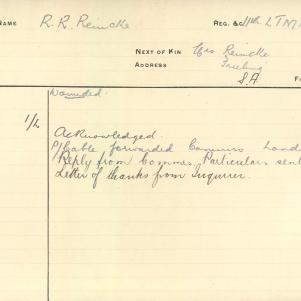 NAME R. R. Reincke REG. &c 11th LTM
NEXT OF KIN Mrs Reincke
ADDRESS Freeling
S.A
Wounded.
Acknowledged
Cable forwarded Commrs Lond
Reply from Commrs. Particulars sent
Letter of thanks from Inquirer.